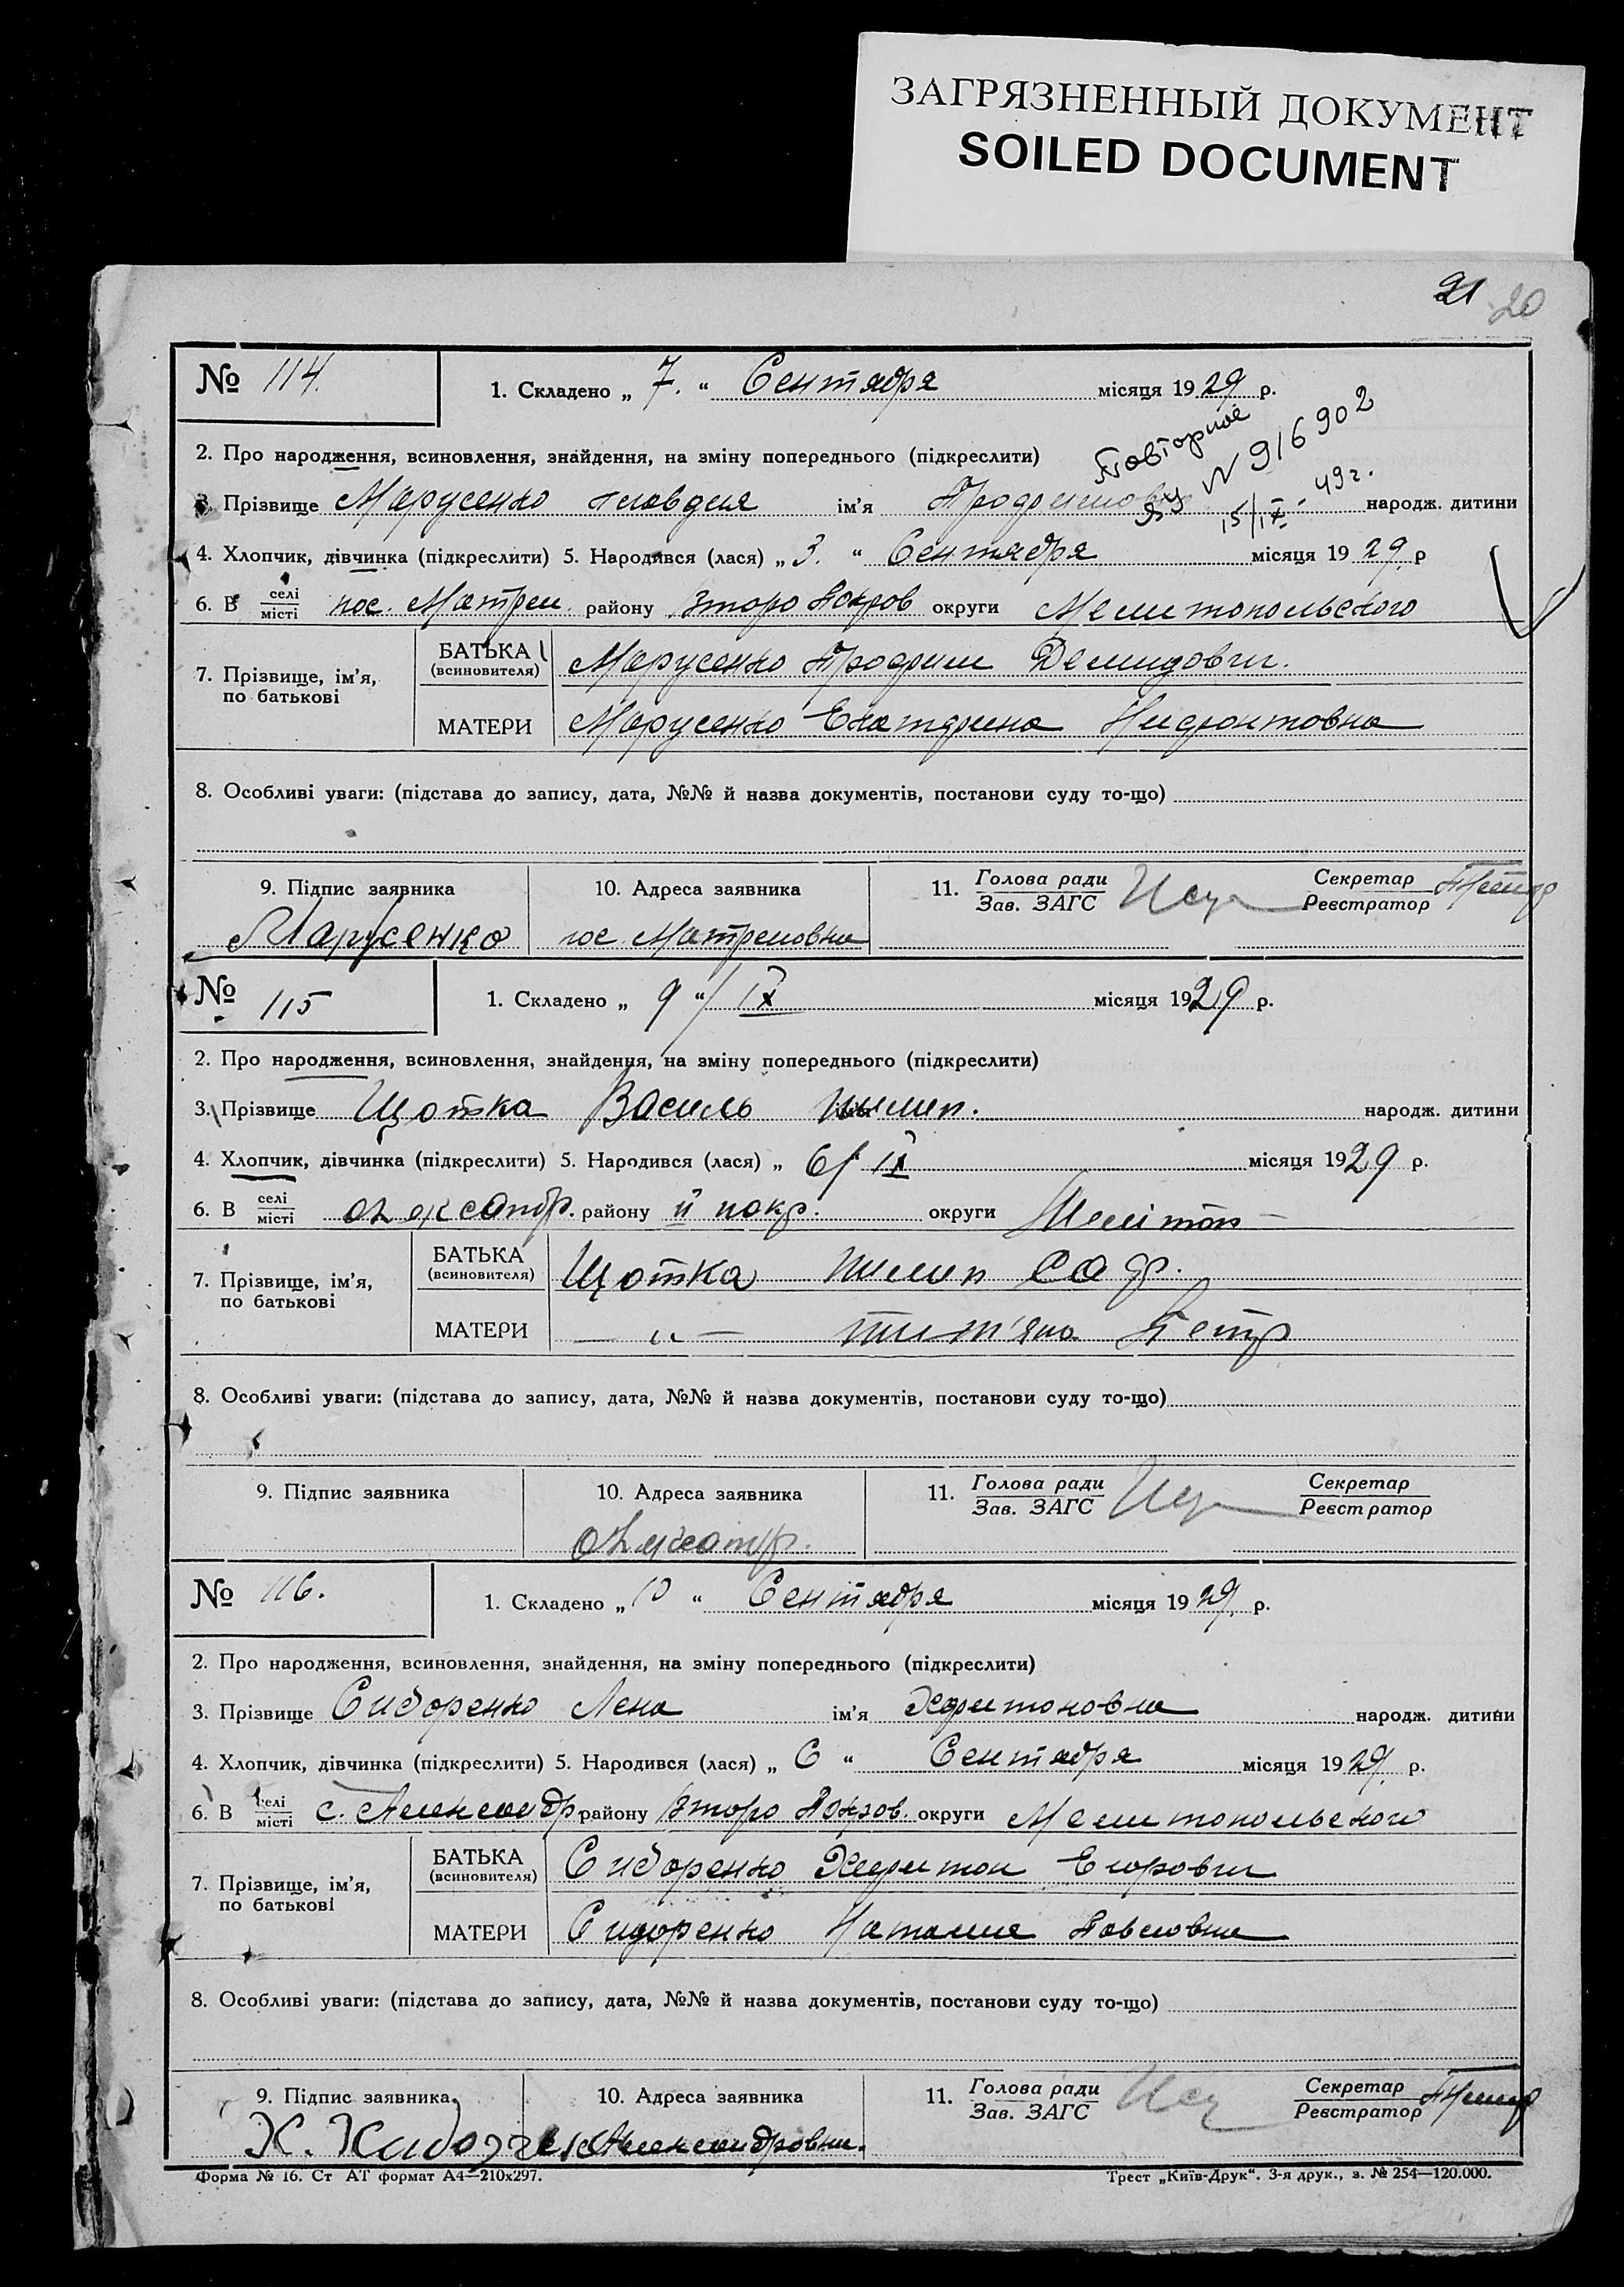 ЗАГРЯЗНЕННЫЙ ДОКУМЕНТ
SOILED DOCUMENT
21 20
№ 114. 1. Складено „ 7. “ Сентября місяця 1929 р.
2. Про народження, всиновлення, знайдення, на зміну попереднього (підкреслити)
Повторное
ЯУ № 916902
15/IX - 49 г.
3. Прізвище Марусенко Клавдия ім'я народж. дитини
4. Хлопчик, дівчинка (підкреслити) 5. Народився (лася) „ 3. “ Сентября місяця 1929. р
6. В селі/місті пос. Матрен. району Второ Покров округи Мелитопольского
7. Прізвище, ім'я, по батькові
БАТЬКА (всиновителя) Марусенко Демидович.
МАТЕРИ Марусенко Екатерина
8. Особливі уваги: (підстава до запису, дата, №№ й назва документів, постанови суду то-що)
9. Підпис заявника 10. Адреса заявника 11. Голова ради/Зав. ЗАГС Секретар/Реєстратор
Марусенко пос. Матреновка
№ 115 1. Складено „ 9 “/IX місяця 1929 р.
2. Про народження, всиновлення, знайдення, на зміну попереднього (підкреслити)
3. Прізвище Щотка Василь Пилип. народж. дитини
4. Хлопчик, дівчинка (підкреслити) 5. Народився (лася) „ 6/IX місяця 1929 р.
6. В селі/місті району II покр. округи Мелітоп
7. Прізвище, ім'я, по батькові
БАТЬКА (всиновителя) Щотка Пилип
МАТЕРИ — „ — Тит'яна Петр
8. Особливі уваги: (підстава до запису, дата, №№ й назва документів, постанови суду то-що)
9. Підпис заявника 10. Адреса заявника 11. Голова ради/Зав. ЗАГС Секретар/Реєстратор
№ 116. 1. Складено „ 10 “ Сентября місяця 1929. р.
2. Про народження, всиновлення, знайдення, на зміну попереднього (підкреслити)
3. Прізвище Сидоренко Лена ім'я Харитоновна народж. дитини
4. Хлопчик, дівчинка (підкреслити) 5. Народився (лася) „ 6 “ Сентября місяця 1929. р.
6. В селі/місті с. Александр. району Второ Покров. округи Мелитопольского
7. Прізвище, ім'я, по батькові
БАТЬКА (всиновителя) Сидоренко Харитон Егорович
МАТЕРИ Сидоренко Наталия Павловна
8. Особливі уваги: (підстава до запису, дата, №№ й назва документів, постанови суду то-що)
9. Підпис заявника 10. Адреса заявника 11. Голова ради/Зав. ЗАГС Секретар/Реєстратор
Форма № 16. Ст АТ формат А4—210x297. Трест „Київ-Друк“. 3-я друк., з. № 254—120.000.